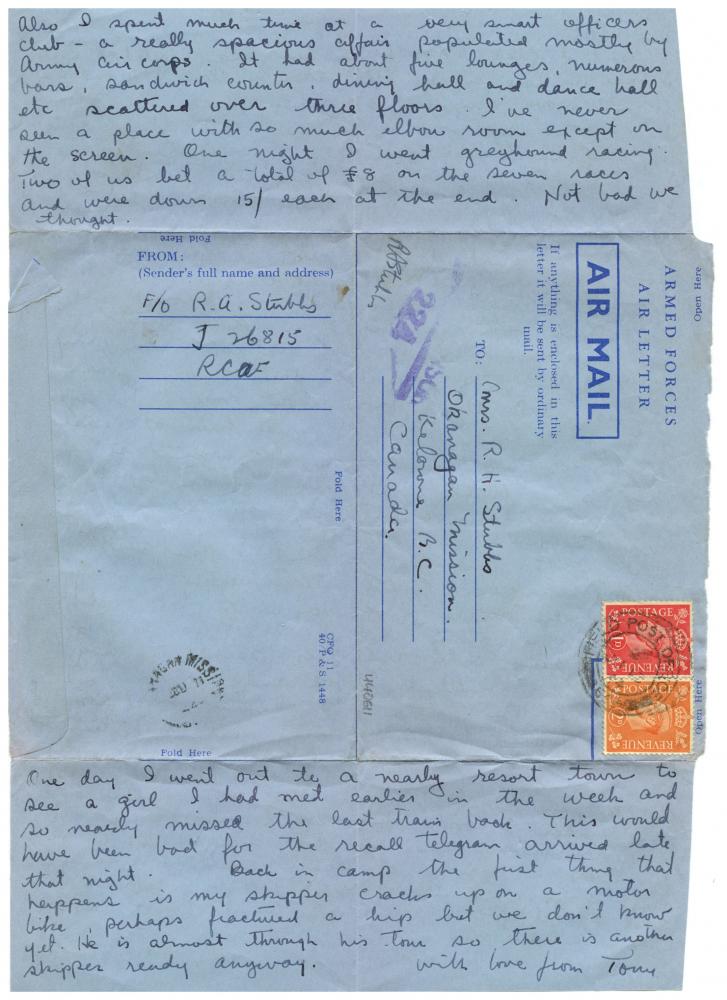 Also I spent much time at a very smart officers
club - a really spacious affair populated mostly by
Army air corps. It had about five lounges, numerous
bars, sandwich counter, dining hall and dance hall
etc scattered over three floors. I've never
seen a place with so much elbow room except on
the screen. One night I went greyhound racing.
Two of us bet a total of £8 on the seven races
and were down 15/ each at the end. Not bad we
thought.
Fold Here
FROM:
(Sender's full name and address)
F/O R.A. Stubbs
J 26815
RCAF
Fold Here
CFQ 11
40 P & S 1448
Fold Here
Open Here
ARMED FORCES
AIR LETTER
AIR MAIL
If anything is enclosed in this
letter it will be sent by ordinary
mail.
TO:
Mrs. R. H. Stubbs
Okanagan Mission.
Kelowna B.C.
Canada.
RAStubbs
224
440611
POSTAGE
1D
REVENUE
POSTAGE
2D
REVENUE
POST OFFICE
MISSION
Open Here
One day I went out to a nearby resort town to
see a girl I had met earlier in the week and
so nearly missed the last train back. This would
have been bad for the recall telegram arrived late
that night. Back in camp the first thing that
happens is my skipper cracks up on a motor
bike, perhaps fractured a hip but we don't know
yet. He is almost through his tour so there is another
skipper ready anyway. With love from Tony